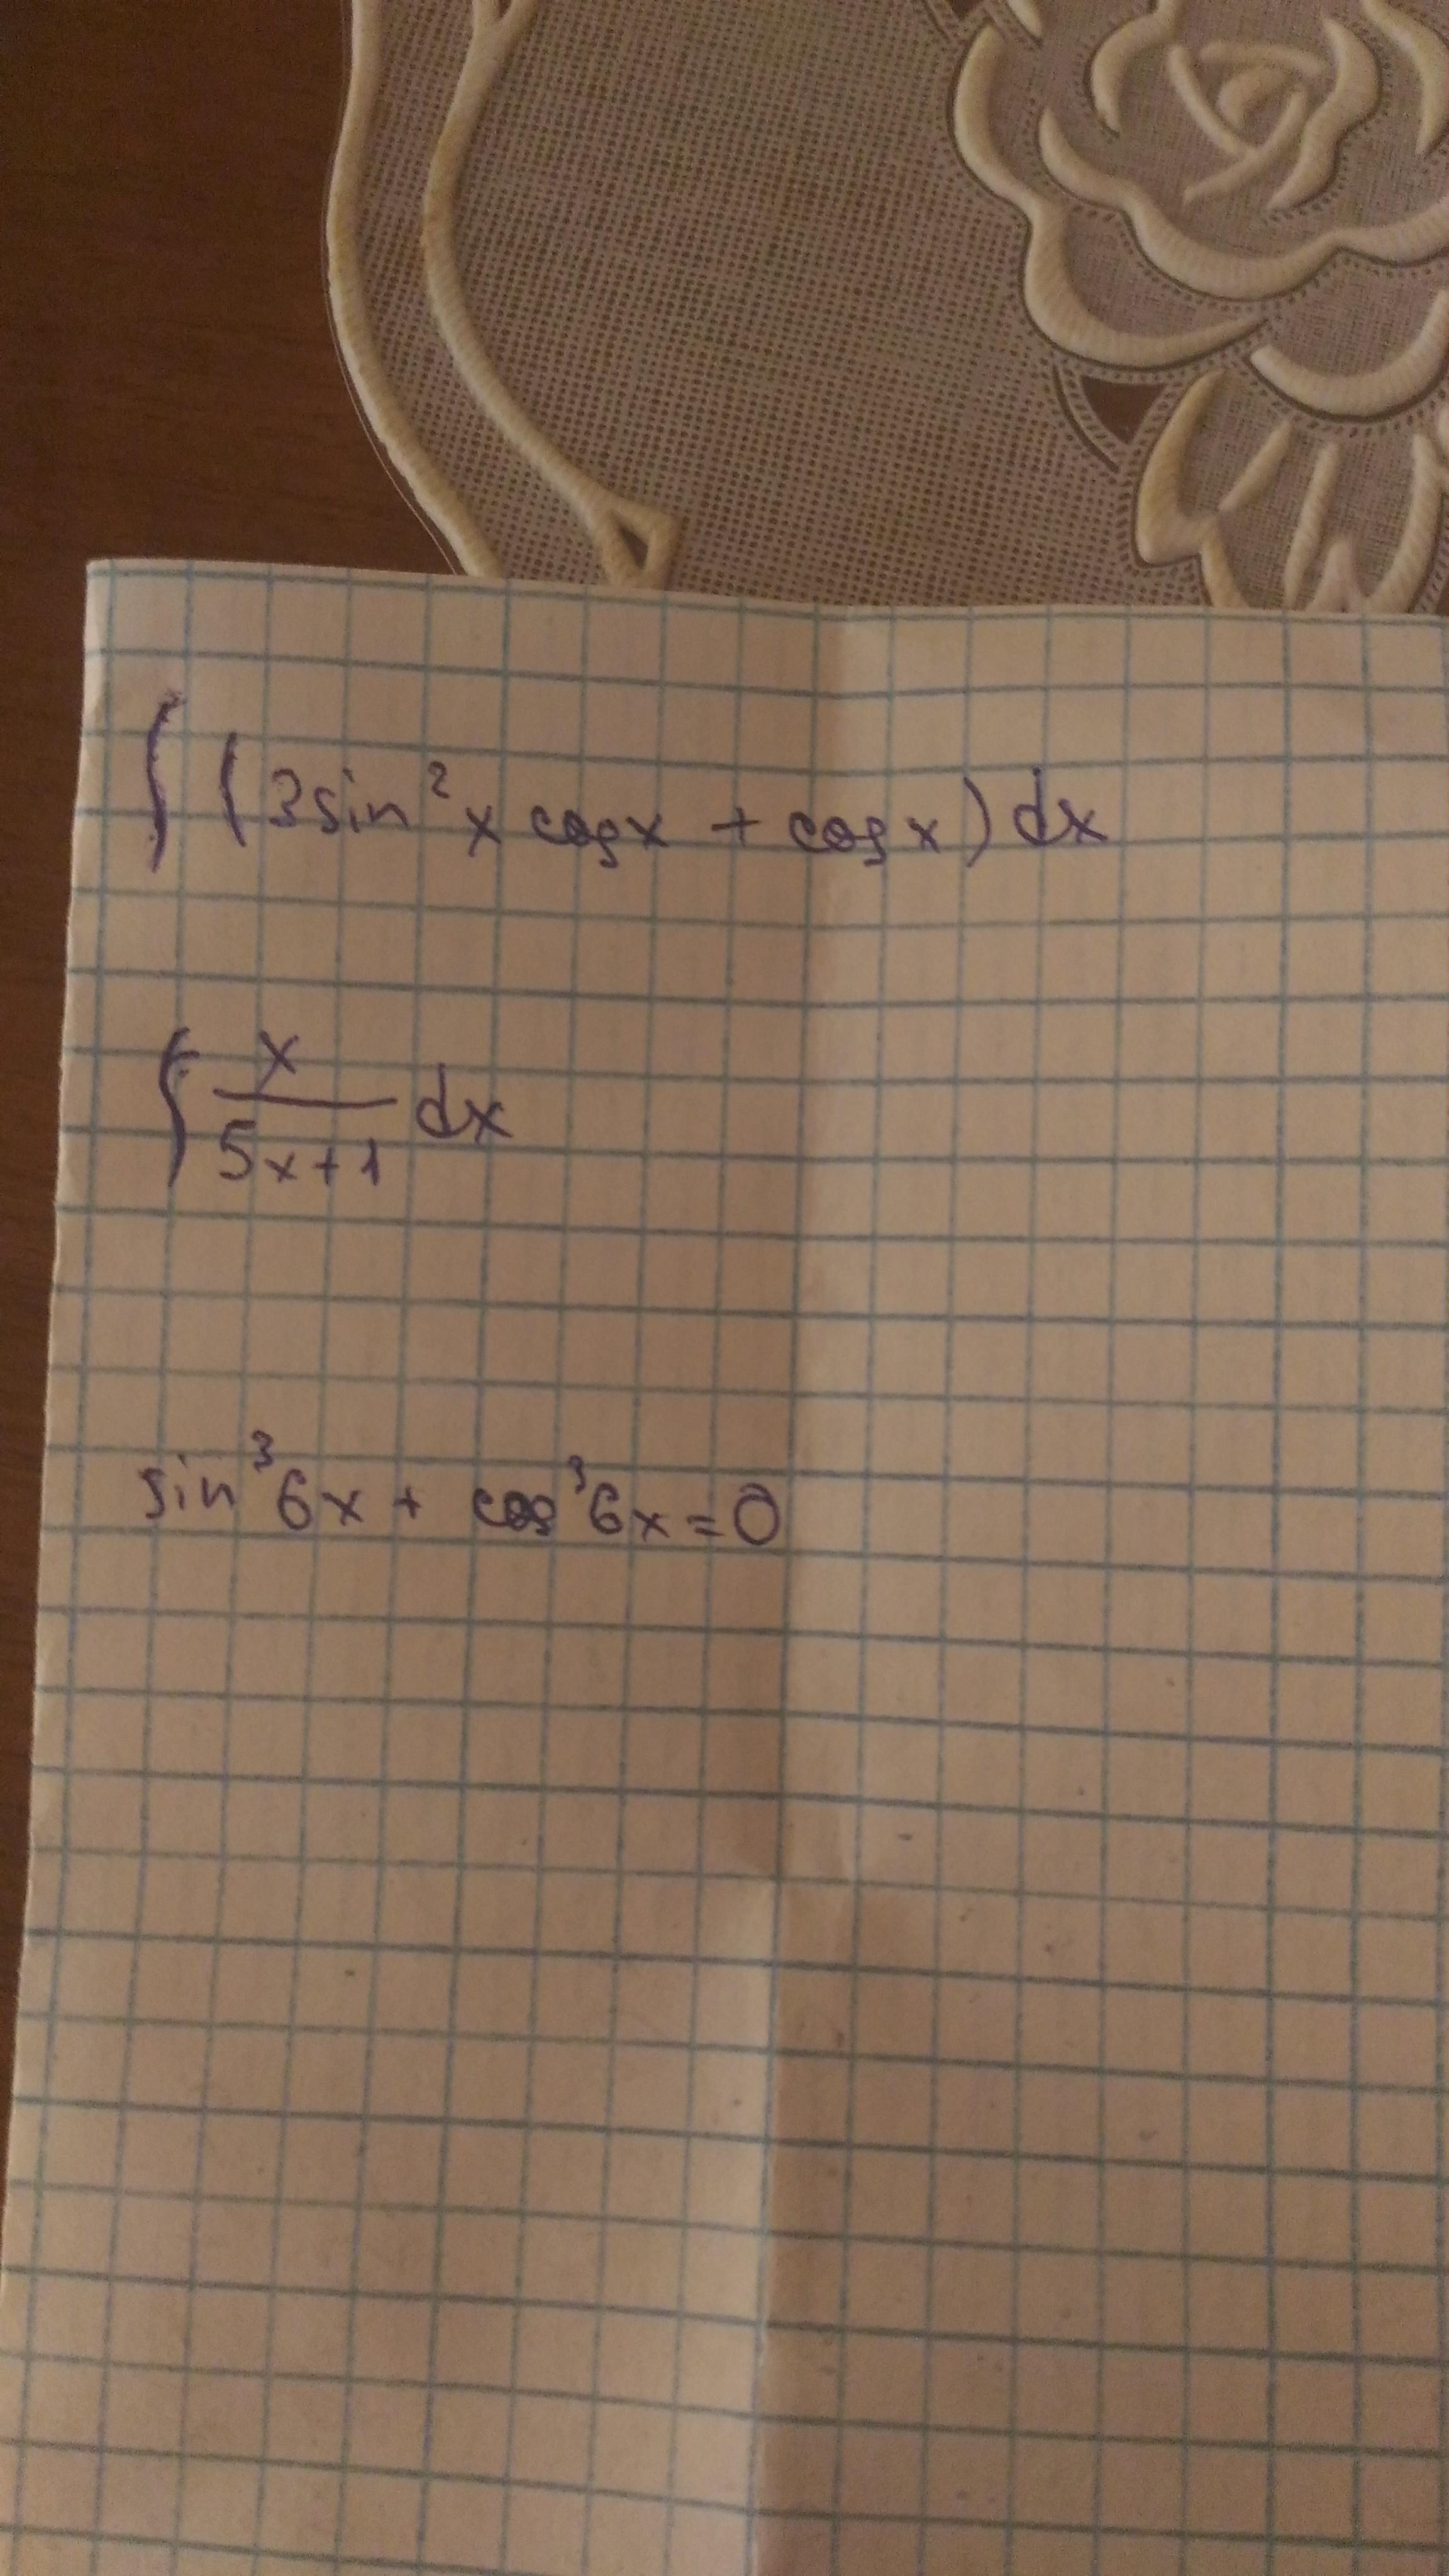 ∫ (3sin²x cosx + cosx) dx
∫ x/(5x+1) dx
sin³6x + cos³6x = 0